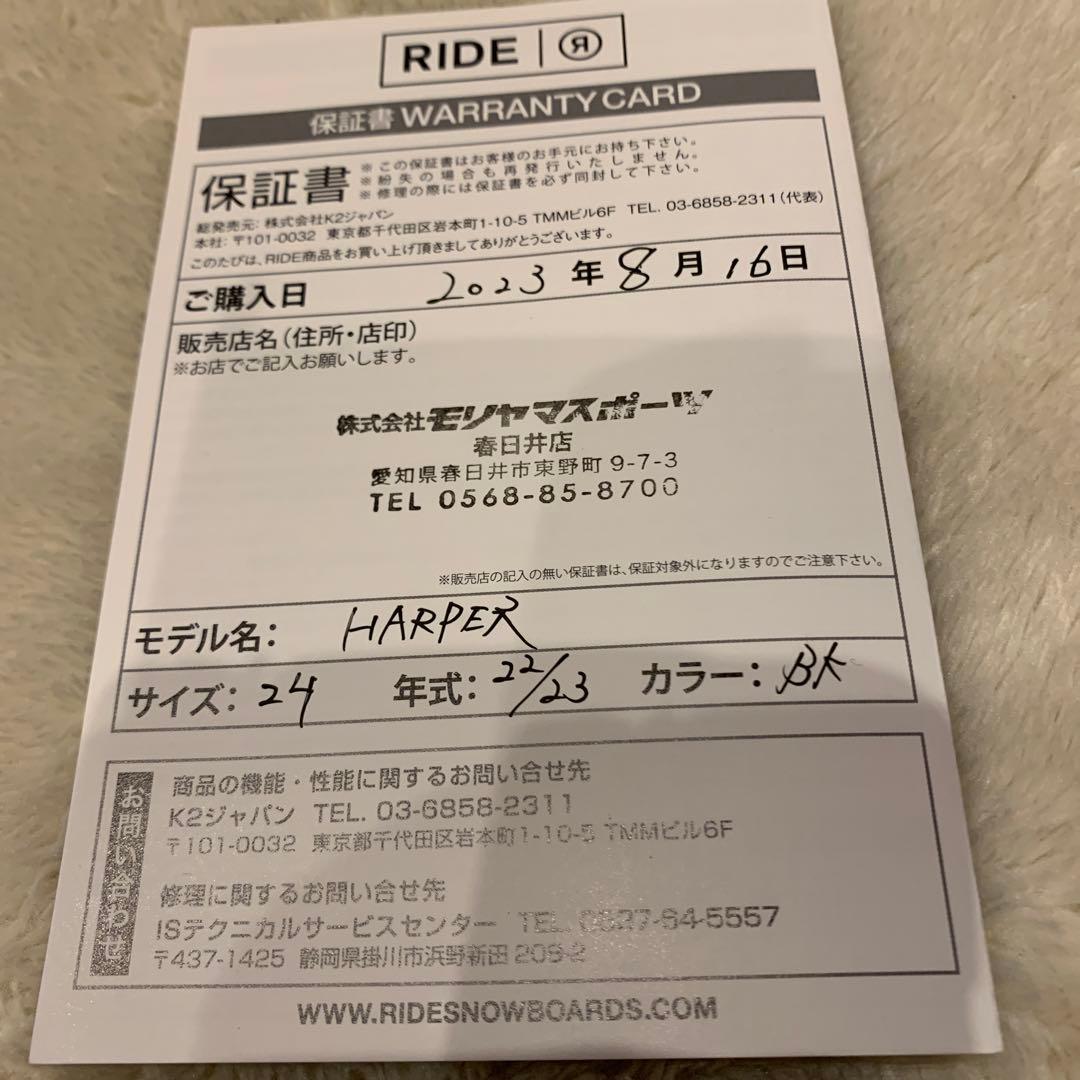 RIDE | R
保証書 WARRANTY CARD
保証書
※この保証書はお客様のお手元にお持ち下さい。
※紛失の場合も再発行いたしません。
※修理の際には保証書を必ず同封して下さい。
総発売元: 株式会社K2ジャパン
本社: 〒101-0032 東京都千代田区岩本町1-10-5 TMMビル6F TEL. 03-6858-2311(代表)
このたびは、RIDE商品をお買い上げ頂きましてありがとうございます。
ご購入日 2023 年 8 月 16 日
販売店名(住所・店印)
※お店でご記入お願いします。
株式会社モリヤマスポーツ
春日井店
愛知県春日井市東野町 9-7-3
TEL 0568-85-8700
※販売店の記入の無い保証書は、保証対象外になりますのでご注意下さい。
モデル名: HARPER
サイズ: 24 年式: 22/23 カラー: BK
お問い合わせ
商品の機能・性能に関するお問い合せ先
K2ジャパン TEL. 03-6858-2311
〒101-0032 東京都千代田区岩本町1-10-5 TMMビル6F
修理に関するお問い合せ先
ISテクニカルサービスセンター TEL. 0537-64-5557
〒437-1425 静岡県掛川市浜野新田 209-2
WWW.RIDESNOWBOARDS.COM